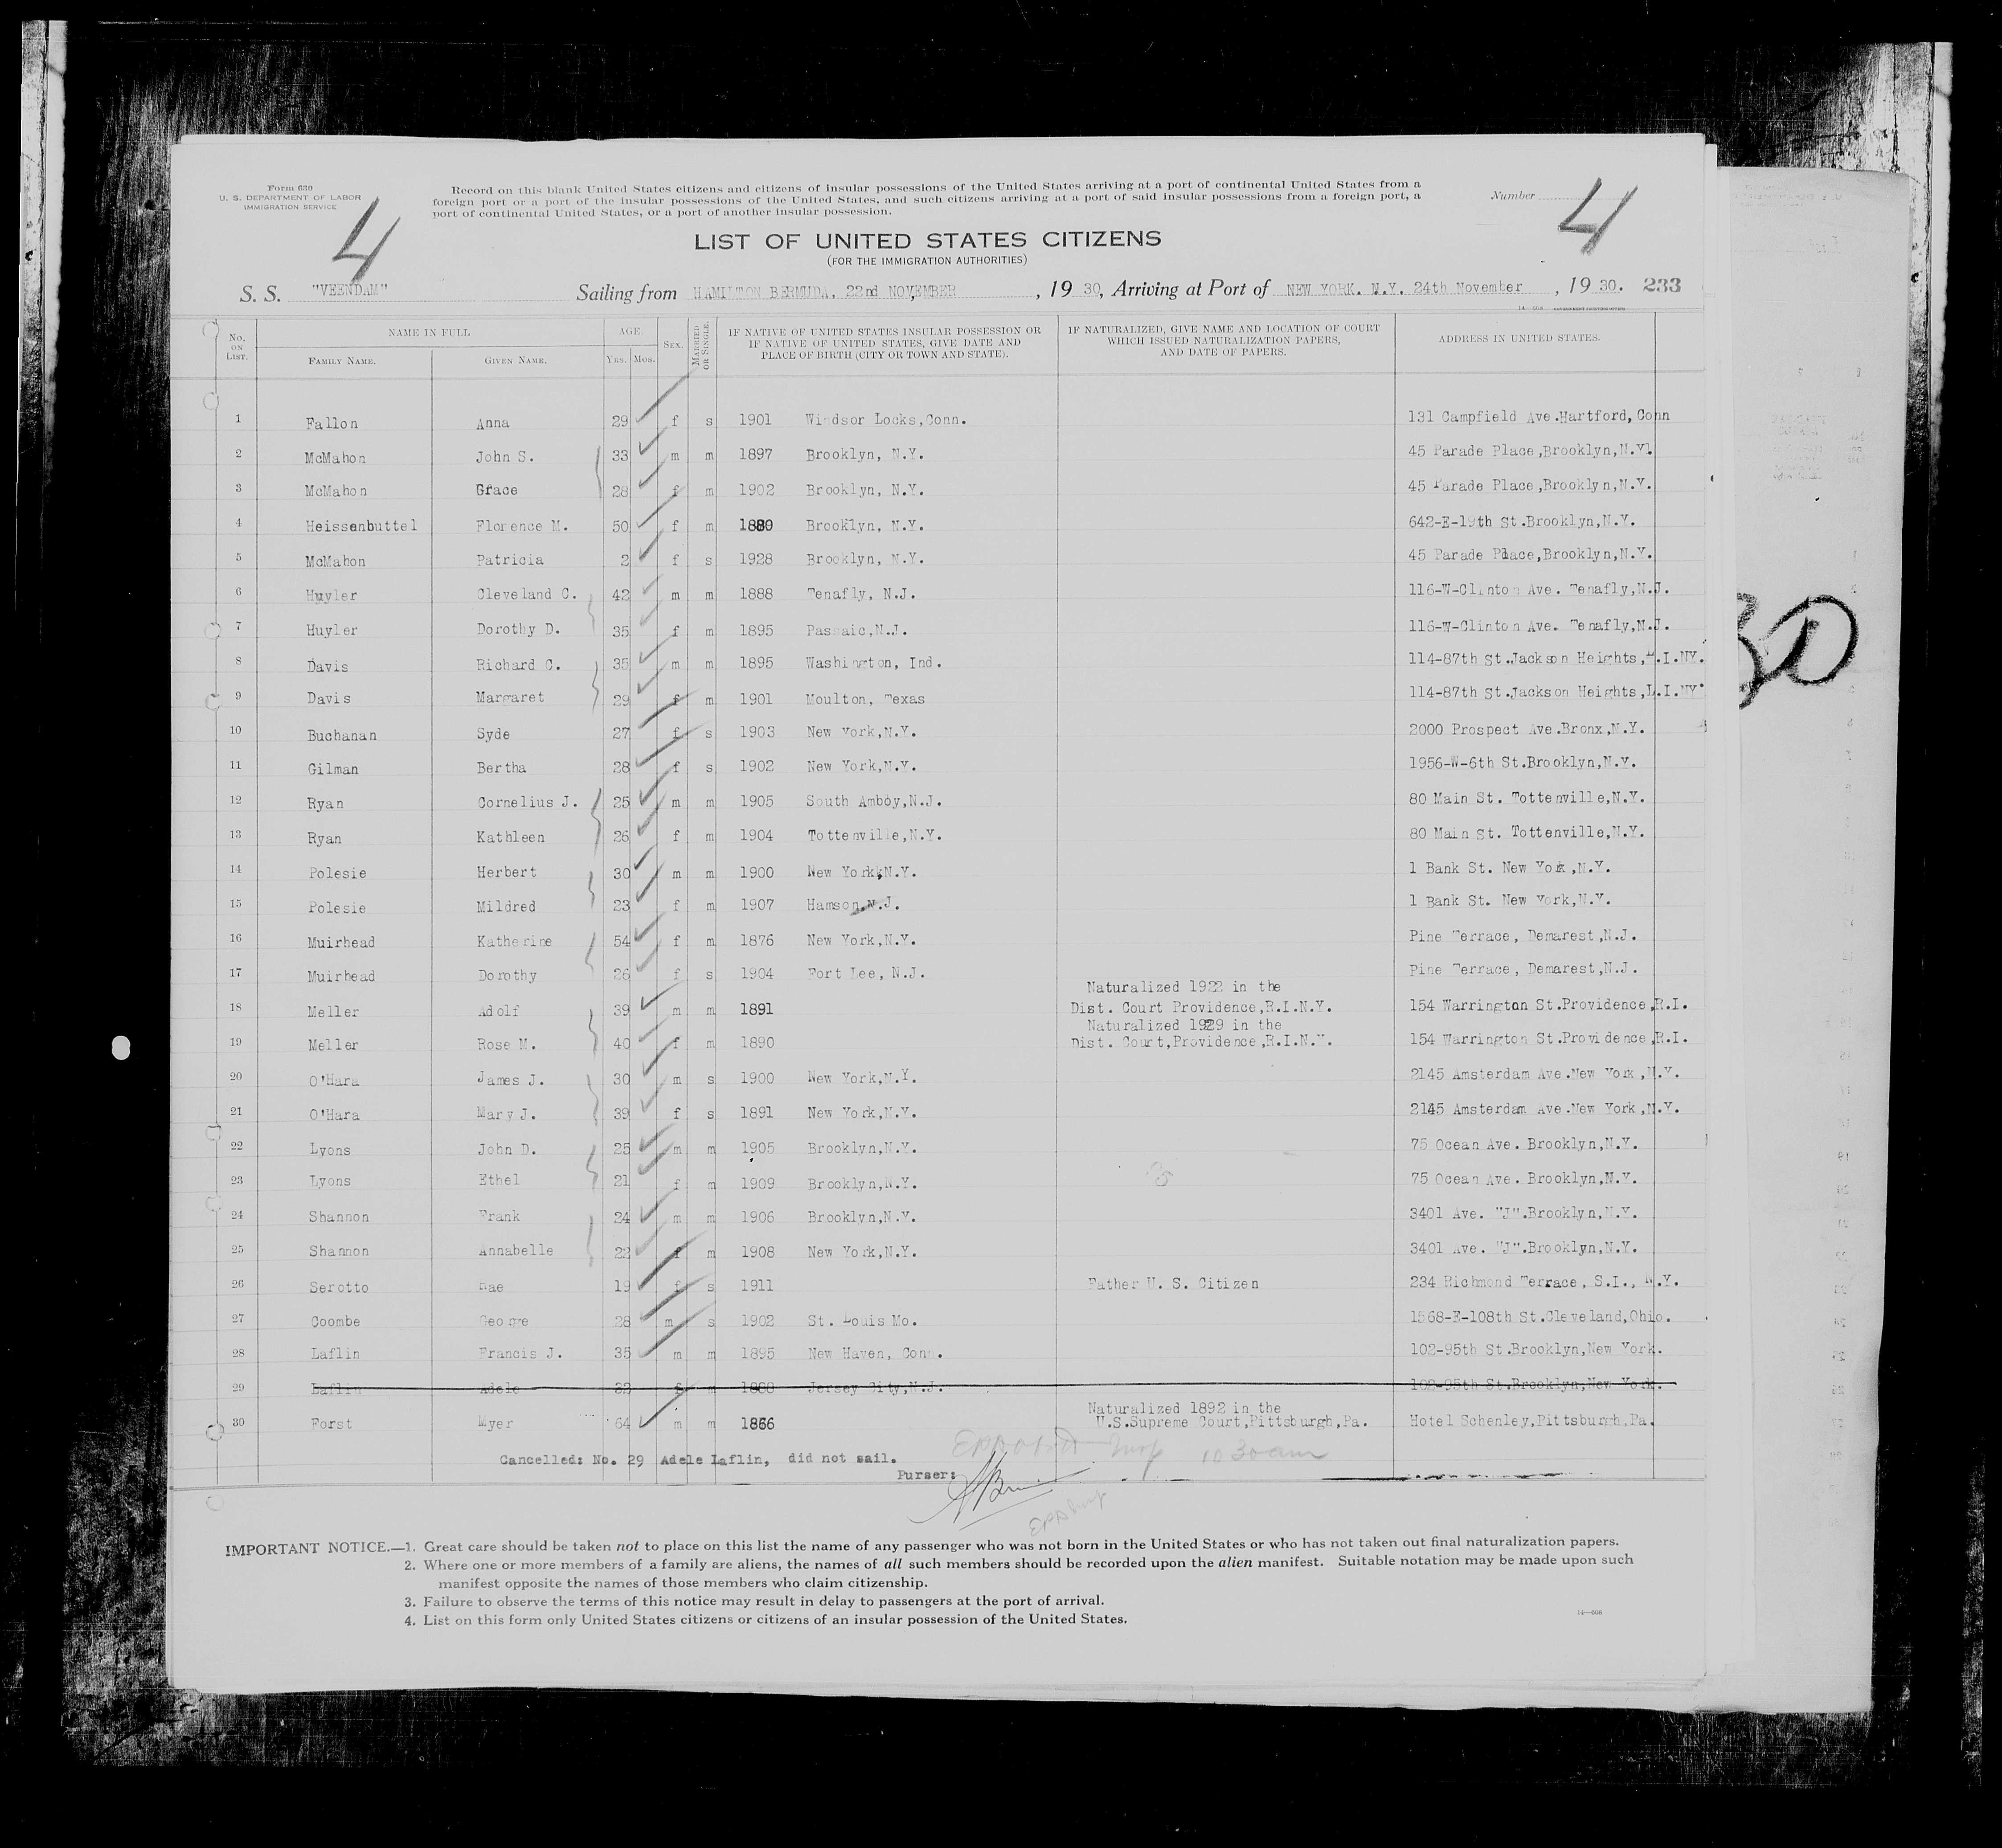 Form 630
U. S. DEPARTMENT OF LABOR
IMMIGRATION SERVICE
4
Record on this blank United States citizens and citizens of insular possessions of the United States arriving at a port of continental United States from a
foreign port or a port of the insular possessions of the United States, and such citizens arriving at a port of said insular possessions from a foreign port, a
port of continental United States, or a port of another insular possession.
Number 4
LIST OF UNITED STATES CITIZENS
(FOR THE IMMIGRATION AUTHORITIES)
S. S. "VEENDAM" Sailing from HAMILTON BERMUDA, 22nd NOVEMBER, 19 30, Arriving at Port of NEW YORK. N.Y. 24th November, 19 30. 233
No. ON LIST. NAME IN FULL FAMILY NAME. GIVEN NAME. AGE. YRS. MOS. SEX. MARRIED OR SINGLE. IF NATIVE OF UNITED STATES INSULAR POSSESSION OR IF NATIVE OF UNITED STATES, GIVE DATE AND PLACE OF BIRTH (CITY OR TOWN AND STATE). IF NATURALIZED, GIVE NAME AND LOCATION OF COURT WHICH ISSUED NATURALIZATION PAPERS, AND DATE OF PAPERS. ADDRESS IN UNITED STATES.
1 Fallon Anna 29 f s 1901 Windsor Locks,Conn. 131 Campfield Ave.Hartford, Conn
2 McMahon John S. 33 m m 1897 Brooklyn, N.Y. 45 Parade Place,Brooklyn,N.Y.
3 McMahon Grace 28 f m 1902 Brooklyn, N.Y. 45 Parade Place,Brooklyn,N.Y.
4 Heissenbuttel Florence M. 50 f m 1880 Brooklyn, N.Y. 642-E-19th St.Brooklyn,N.Y.
5 McMahon Patricia 2 f s 1928 Brooklyn, N.Y. 45 Parade Place,Brooklyn,N.Y.
6 Huyler Cleveland C. 42 m m 1888 Tenafly, N.J. 116-W-Clinton Ave. Tenafly,N.J.
7 Huyler Dorothy D. 35 f m 1895 Passaic,N.J. 116-W-Clinton Ave. Tenafly,N.J.
8 Davis Richard C. 35 m m 1895 Washington, Ind. 114-87th St.Jackson Heights,L.I.NY.
9 Davis Margaret 29 f m 1901 Moulton, Texas 114-87th St.Jackson Heights,L.I.NY.
10 Buchanan Syde 27 f s 1903 New York,N.Y. 2000 Prospect Ave.Bronx,N.Y.
11 Gilman Bertha 28 f s 1902 New York,N.Y. 1956-W-6th St.Brooklyn,N.Y.
12 Ryan Cornelius J. 25 m m 1905 South Amboy,N.J. 80 Main St. Tottenville,N.Y.
13 Ryan Kathleen 26 f m 1904 Tottenville,N.Y. 80 Main St. Tottenville,N.Y.
14 Polesie Herbert 30 m m 1900 New York,N.Y. 1 Bank St. New York,N.Y.
15 Polesie Mildred 23 f m 1907 Hamson,N.J. 1 Bank St. New York,N.Y.
16 Muirhead Katherine 54 f m 1876 New York,N.Y. Pine Terrace, Demarest,N.J.
17 Muirhead Dorothy 26 f s 1904 Fort Lee, N.J. Pine Terrace, Demarest,N.J.
Naturalized 1922 in the
18 Meller Adolf 39 m m 1891 Dist. Court Providence,R.I.N.Y. 154 Warrington St.Providence,R.I.
Naturalized 1929 in the
19 Meller Rose M. 40 f m 1890 Dist. Court,Providence,R.I.N.Y. 154 Warrington St.Providence,R.I.
20 O'Hara James J. 30 m s 1900 New York,N.Y. 2145 Amsterdam Ave.New York,N.Y.
21 O'Hara Mary J. 39 f s 1891 New York,N.Y. 2145 Amsterdam Ave.New York,N.Y.
22 Lyons John D. 25 m m 1905 Brooklyn,N.Y. 75 Ocean Ave. Brooklyn,N.Y.
23 Lyons Ethel 21 f m 1909 Brooklyn,N.Y. 75 Ocean Ave. Brooklyn,N.Y.
24 Shannon Frank 24 m m 1906 Brooklyn,N.Y. 3401 Ave. "J".Brooklyn,N.Y.
25 Shannon Annabelle 22 f m 1908 New York,N.Y. 3401 Ave. "J".Brooklyn,N.Y.
26 Serotto Rae 19 f s 1911 Father U. S. Citizen 234 Richmond Terrace, S.I., N.Y.
27 Coombe George 28 m s 1902 St. Louis Mo. 1568-E-108th St.Cleveland,Ohio.
28 Laflin Francis J. 35 m m 1895 New Haven, Conn. 102-95th St.Brooklyn,New York.
29 Laflin Adele 32 f m Jersey City,N.J. 102-95th St.Brooklyn,New York.
Naturalized 1892 in the
30 Forst Myer 64 m m 1866 U.S.Supreme Court,Pittsburgh,Pa. Hotel Schenley,Pittsburgh,Pa.
Cancelled: No. 29 Adele Laflin, did not sail.
10 30 am
Purser:
IMPORTANT NOTICE.—1. Great care should be taken not to place on this list the name of any passenger who was not born in the United States or who has not taken out final naturalization papers.
2. Where one or more members of a family are aliens, the names of all such members should be recorded upon the alien manifest. Suitable notation may be made upon such
manifest opposite the names of those members who claim citizenship.
3. Failure to observe the terms of this notice may result in delay to passengers at the port of arrival.
4. List on this form only United States citizens or citizens of an insular possession of the United States.
14—608
30